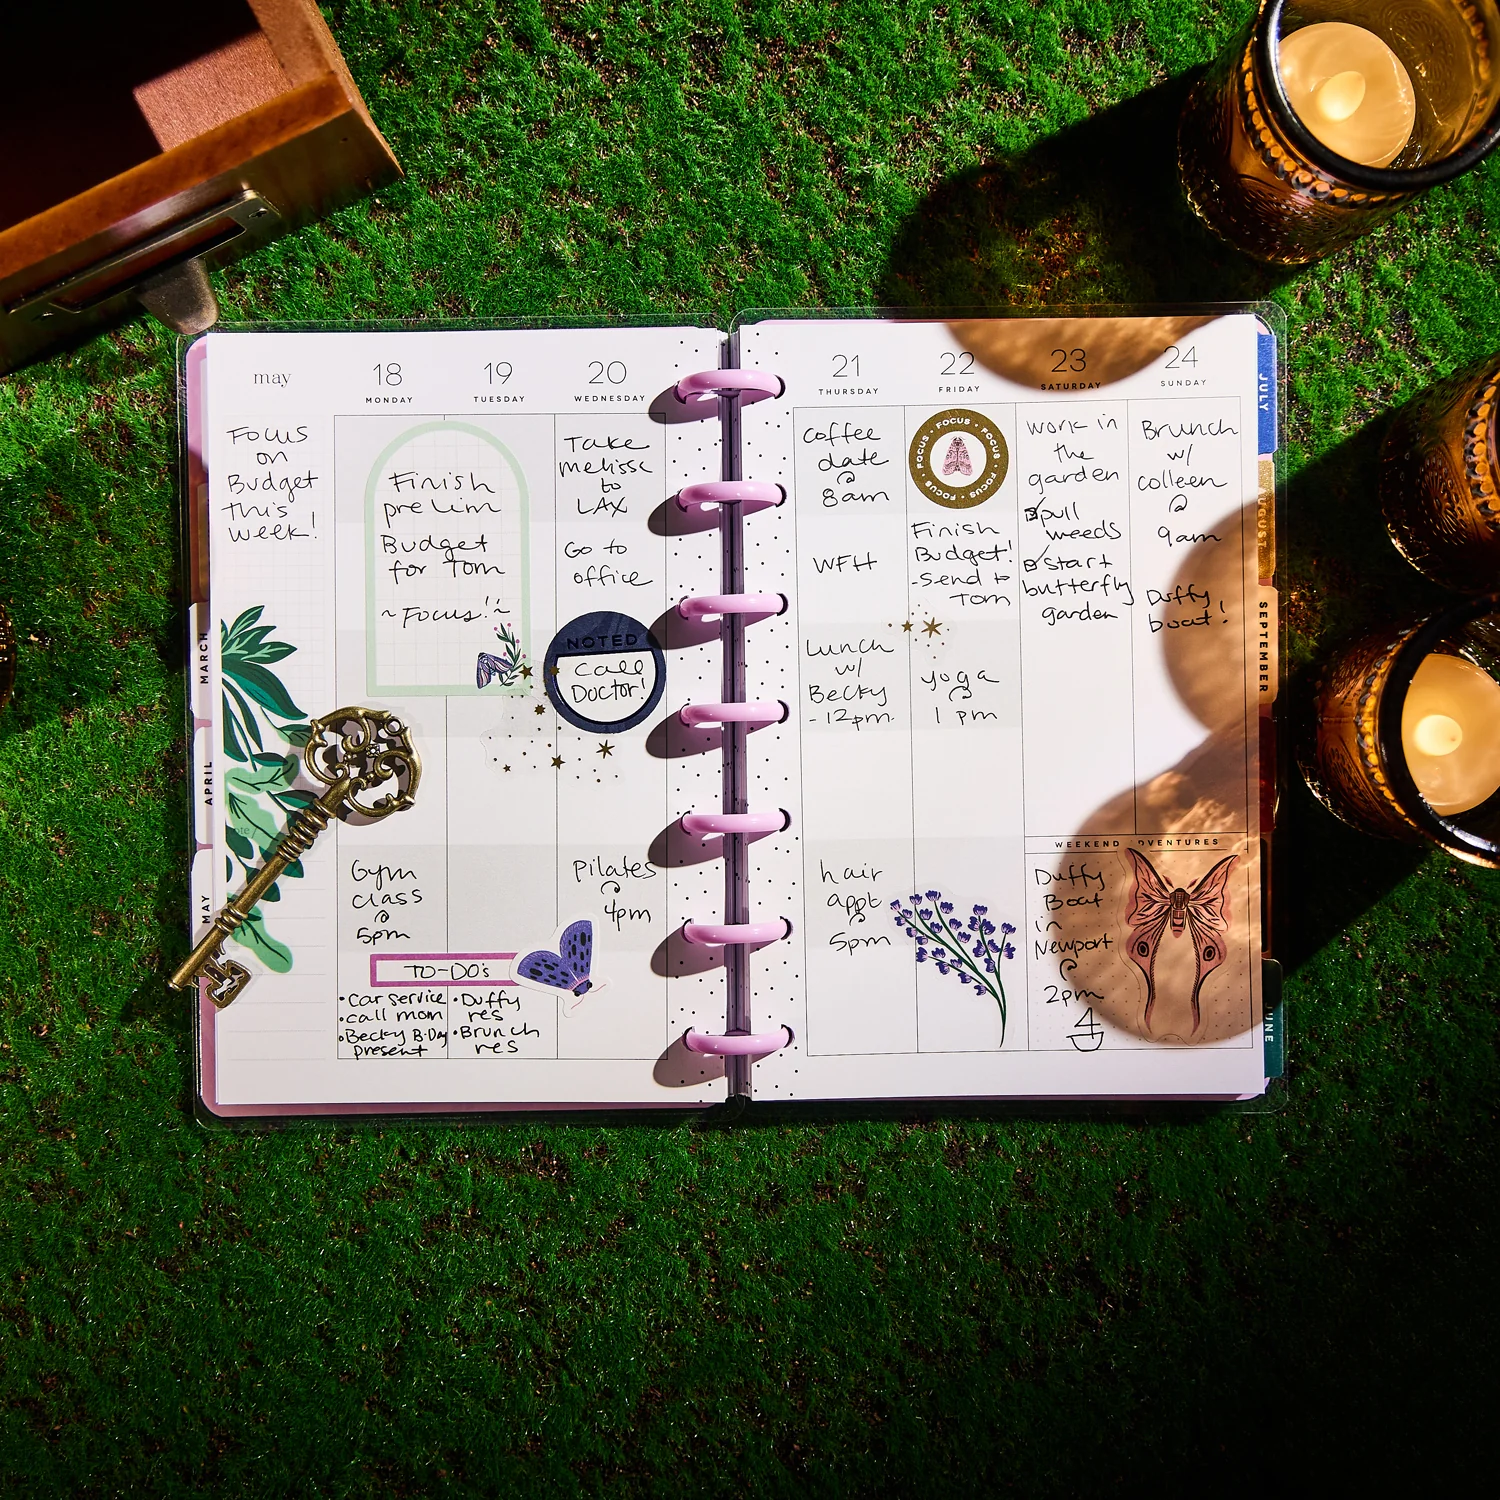 may
Focus
on
Budget
this
week!
18
MONDAY
19
TUESDAY
Finish
prelim
Budget
for Tom
~Focus!~
Gym
class
@
5pm
TO-DO's
•car service
•call mom
•Becky B-Day
present
•Duffy
res
•Brunch
res
20
WEDNESDAY
Take
melissa
to
LAX
Go to
office
NOTED
Call
Doctor!
Pilates
@
4pm
21
THURSDAY
Coffee
date
@
8am
WFH
Lunch
w/
Becky
-12pm
hair
appt
@
5pm
22
FRIDAY
FOCUS • FOCUS • FOCUS • FOCUS • FOCUS • FOCUS •
Finish
Budget!
-send to
Tom
yoga
@
1 pm
23
SATURDAY
work in
the
garden
pull
weeds
start
butterfly
garden
24
SUNDAY
Brunch
w/
colleen
@
9am
Duffy
boat!
WEEKEND DVENTURES
Duffy
Boat
in
Newport
@
2pm
MARCH
APRIL
MAY
JULY
AUGUST
SEPTEMBER
UNE